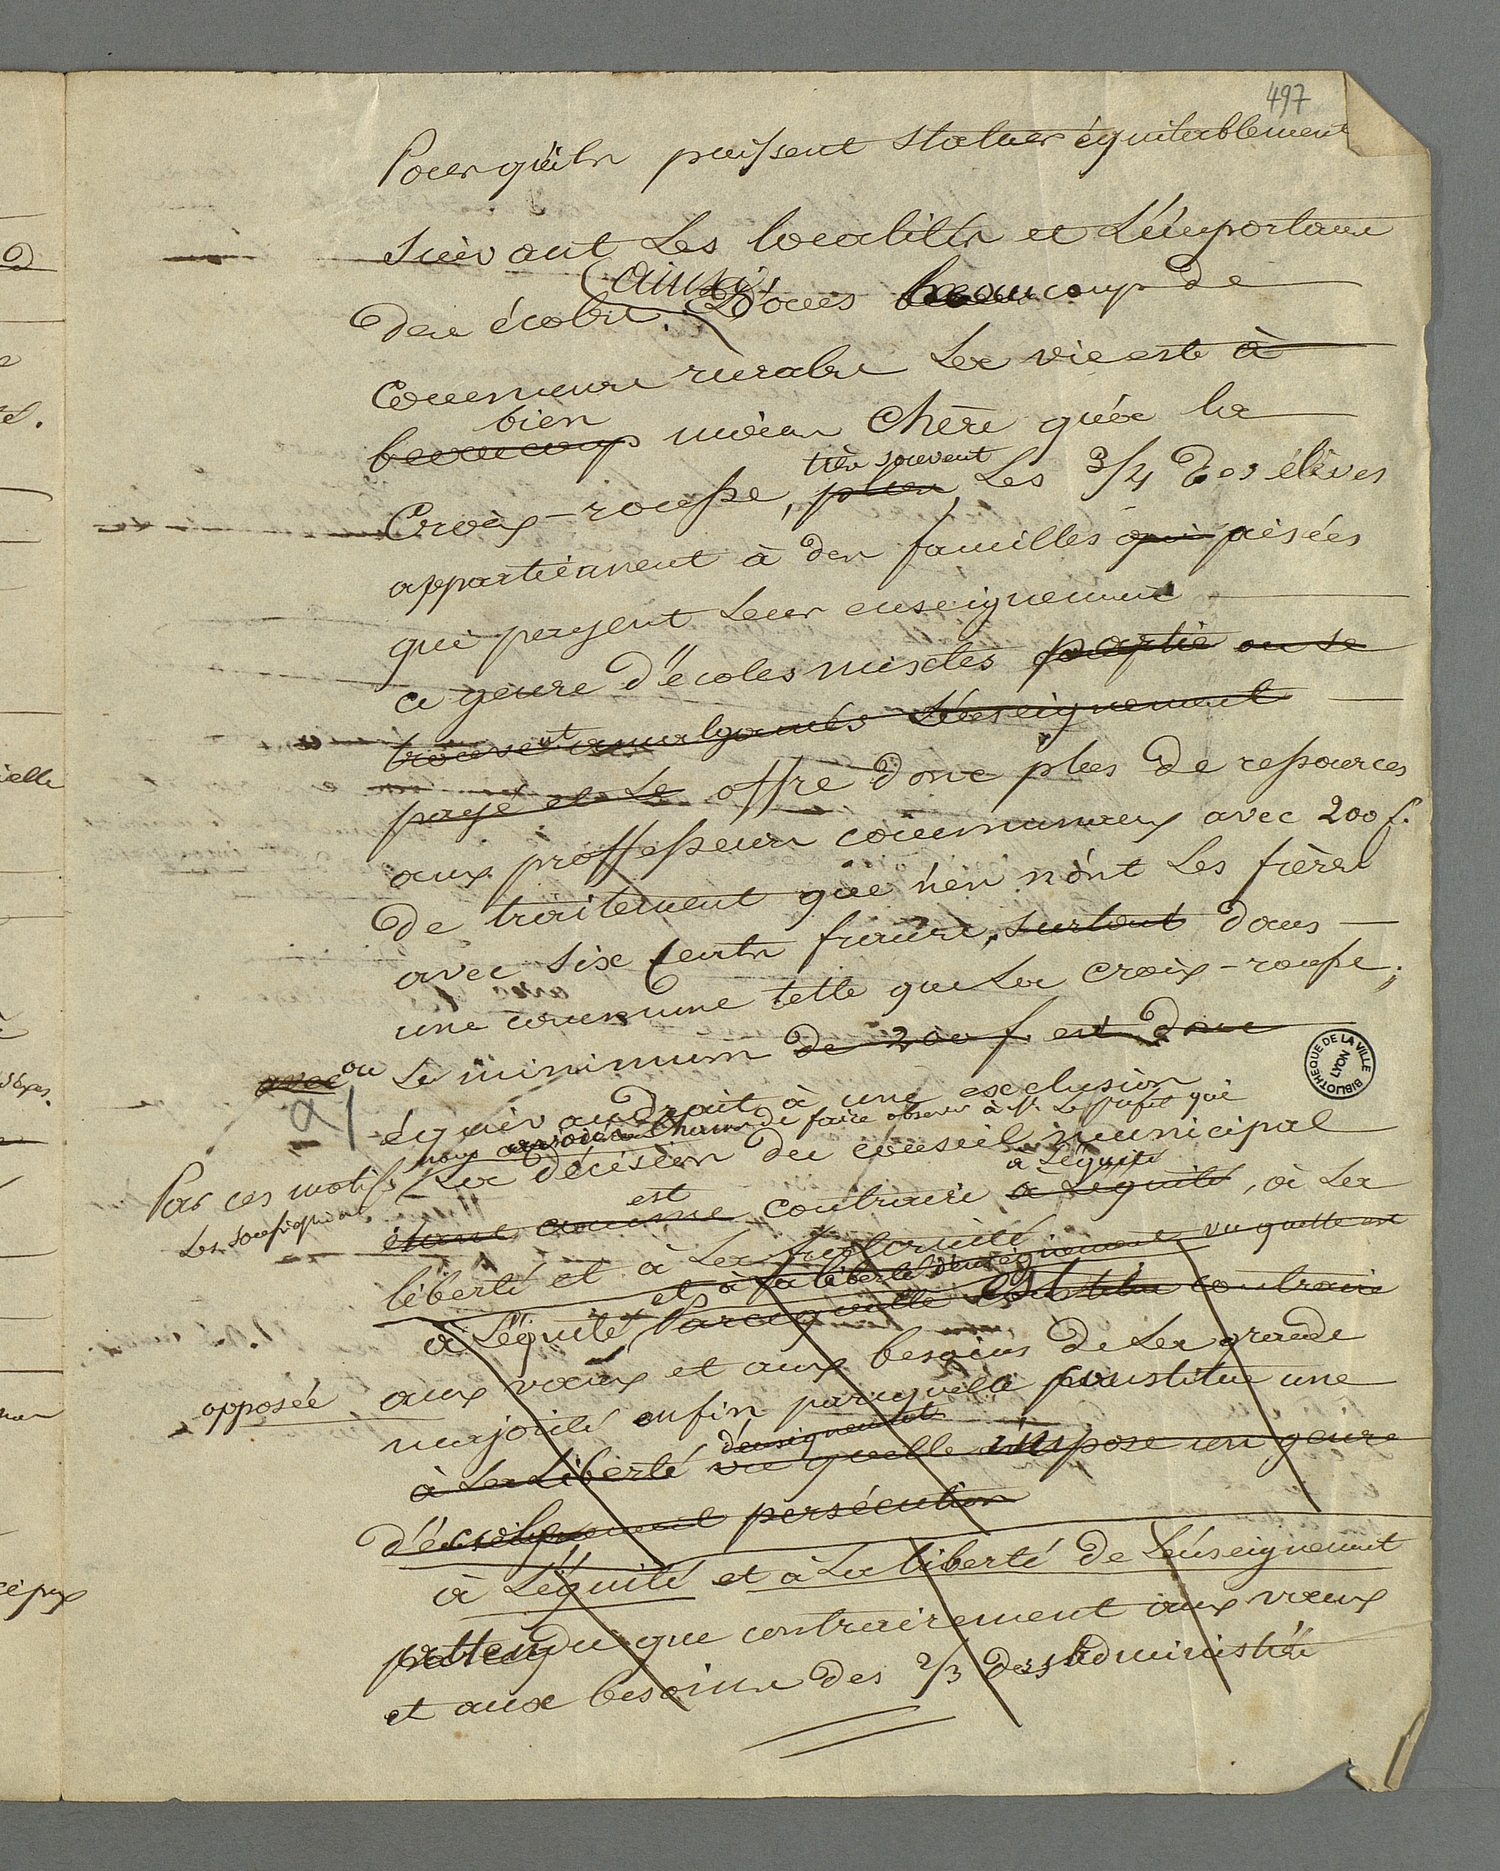 497
Pour qu'ils puissent statuer équitablement
suivant les localités et l'importance
des écoles (ainsi) Dans beaucoup de
communes rurales la vie est à
bien
beaucoup moins chère qu'à la
très souvent
Croix-rousse, plus, Les 3/4 des élèves
appartiennent à des familles qui aisées
qui payent leur enseignement
ce genre d'écoles mixtes partie ou se
trouvent amalgamés l'enseignement
payé et le offre donc plus de ressources
aux proffesseurs communaux avec 200 f.
de traitement que n'en n'ont les frères
avec six cents francs, surtout dans
une commune telle que la croix-rousse;
avec ou Le minimum de 200 f. est donc
a/ équivaudrait à une exclusion
nous de faire observer à Mr Le Préfet que
Par ces motifs
Les soussignés
La décision du conseil municipal
à l'équité
est
étant comme contraire à l'équité, à la
liberté et à la
et à la liberté d'enseignement vu quelle est
à l'équité Parcequelle contraire
opposée aux vœux et aux besoins de la grande
majorité enfin parcequelle constitue une
d'enseignement
à la Liberté vu quelle impose un genre
persécution
à l'équité et à la liberté de l'enseignement
attendu que contrairement aux vœux
et aux besoins des 2/3 des administrés
BIBLIOTHEQUE DE LA VILLE
LYON